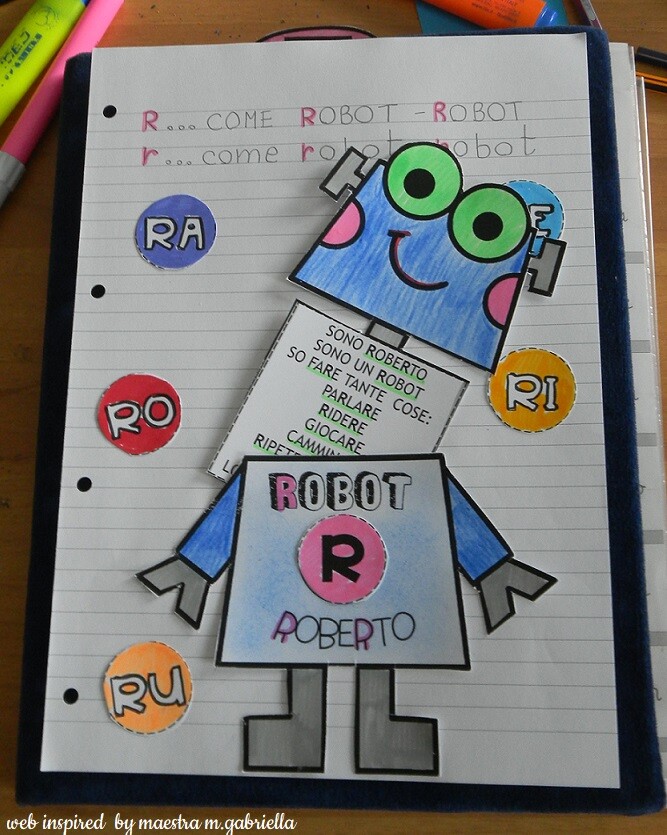 R... COME ROBOT - ROBOT
r... come robot robot
RA
SONO ROBERTO
SONO UN ROBOT
SO FARE TANTE COSE:
PARLARE
RIDERE
GIOCARE
RI
RO
ROBOT
R
ROBERTO
RU
web inspired by maestra m.gabriella